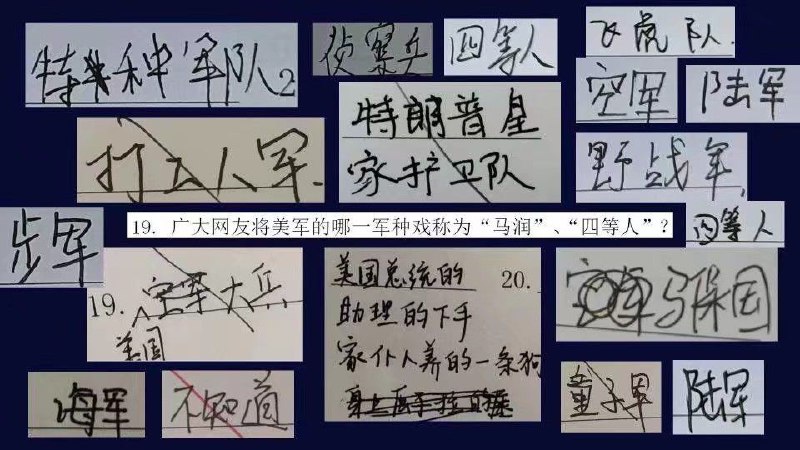 特种军队2
侦察兵
四等人
飞虎队.
空军
陆军
打工人军.
特朗普皇
家护卫队
野战军,
步军
19. 广大网友将美军的哪一军种戏称为“马润”、“四等人”?
四等人
19. 空军大兵
美国
美国总统的
助理的下手
家仆人养的一条狗
20.
马保国
海军
不知道
童子军
陆军